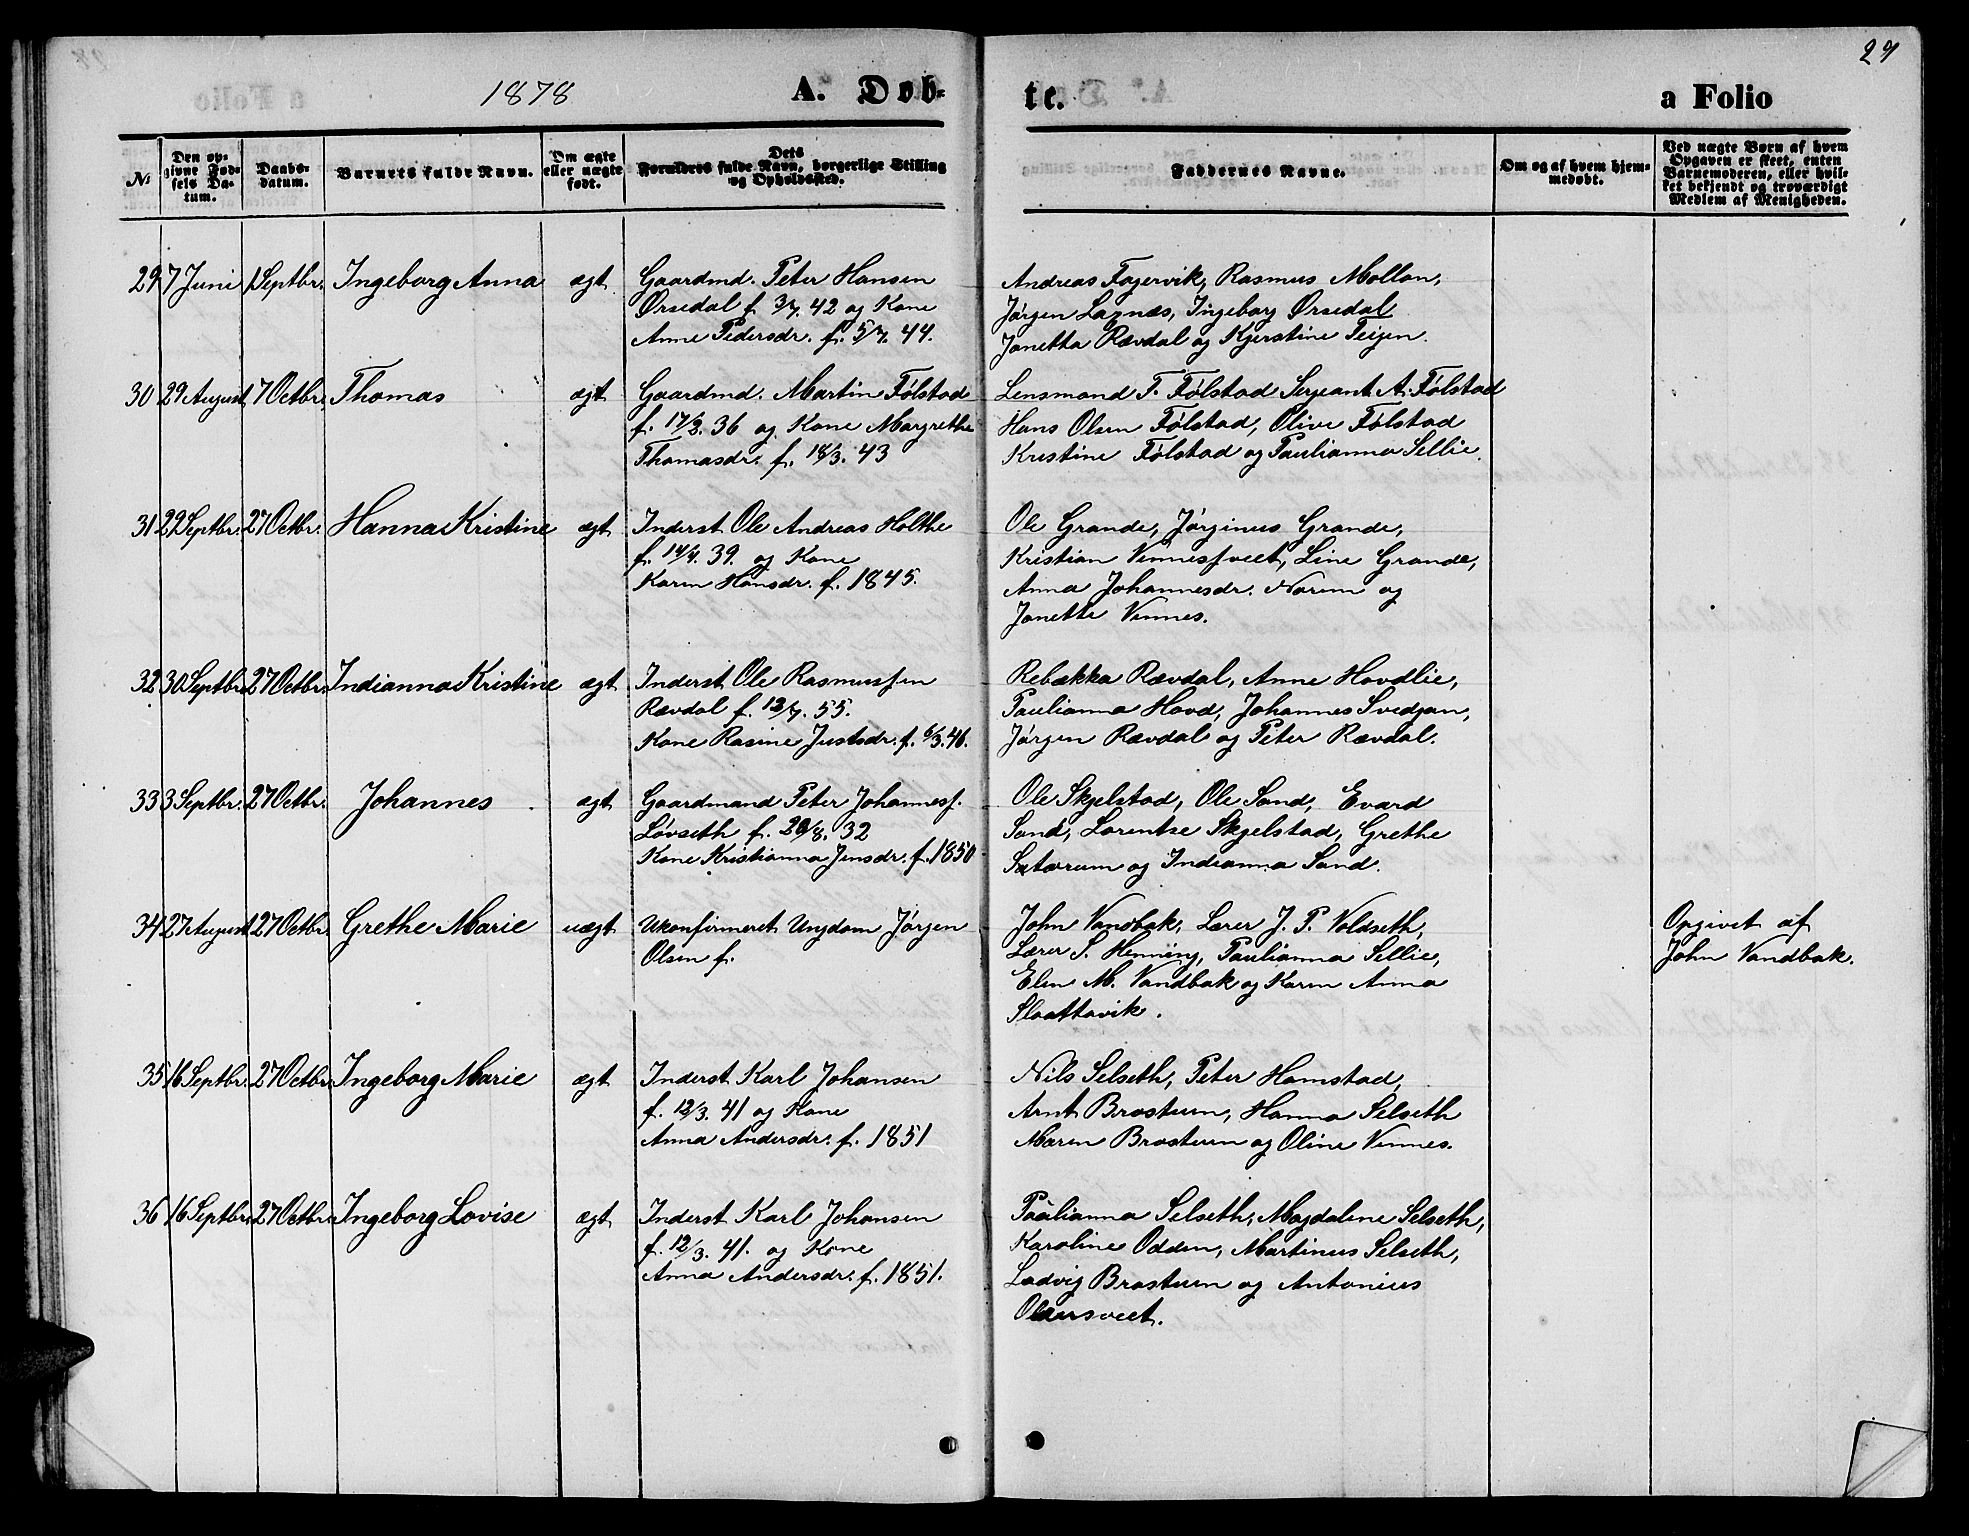 29
1878 A. Døb- te. a Folio
No
Den op-
givne Fød-
sels Da-
tum.
Daabs-
datum.
Barnets fulde Navn.
Om ægte
eller uægte
født.
Dets
Forældres fulde Navn, borgerlige Stilling
og Opholdssted.
Faddernes Navne.
Om og af hvem hjem-
medøbt.
Ved uægte Børn af hvem
Opgaven er skeet, enten
Barnemoderen, eller hvil-
ket bekjendt og troværdigt
Medlem af Menigheden.
29 7 Juni 1 Septbr. Ingeborg Anna ægt Gaardmd. Peter Hansen
Ørsedal f. 3/7. 42 og Kone
Anne Pedersdr. f. 5/7. 44.
Andreas Fagervik, Rasmus Mollan,
Jørgen Laxnæs, Ingeborg Ørsedal
Janetta Rævdal og Kjerstine Teigen.
30 29 August 7 Octbr. Thomas ægt Gaardmd. Martin Følstad
f. 17/2. 36 og Kone Margrethe
Thomasdr. f. 18/3. 43
Lensmand T. Følstad Sergeant A. Følstad
Hans Olsen Følstad, Olive Følstad
Kristine Følstad og Paulianna Sellie.
31 22 Septbr. 27 Octbr. Hanna Kristine ægt Inderst Ole Andreas Holthe
f. 14/4. 39. og Kone
Karen Hansdr. f. 1845.
Ole Grande, Jørginus Grande,
Kristian Vinnessveet, Line Grande,
Anna Johannesdr. Norum og
Janette Vinnes.
32 30 Septbr. 27 Octbr. Indianna Kristine ægt Inderst Ole Rasmussen
Rævdal f. 12/7. 55.
Kone Rasine Justsdr. f. 6/3. 46.
Rebækka Rævdal, Anne Hovdlie,
Paulianna Hovd, Johannes Svedjan,
Jørgen Rævdal og Peter Rævdal.
33 3 Septbr. 27 Octbr. Johannes ægt Gaardmand Peter Johanness.
Løvseth f. 20/8. 32
Kone Kristianna Jensdr. f. 1850
Ole Skjelstad, Ole Sand, Evard
Sand, Lorentse Skjelstad, Grethe
Sætarum og Indianna Sand.
34 27 August 27 Octbr. Grethe Marie uægt Ukonfirmeret Ungdom Jørgen
Olsen f.
John Vandbak, Lærer J. P. Voldseth,
Lærer S. Henning, Paulianna Sellie,
Elen M. Vandbak og Karen Anna
Slaattavik.
Opgivet af
John Vandbak.
35 16 Septbr. 27 Octbr. Ingeborg Marie ægt Inderst Karl Johansen
f. 12/3. 41 og Kone
Anna Andersdr. f. 1851
Nils Selseth, Peter Hamstad,
Arnt Brostum, Hanna Selseth
Maren Brostum og Oline Vinnes.
36 16 Septbr. 27 Octbr. Ingeborg Lovise ægt Inderst Karl Johansen
f. 12/3. 41. og Kone
Anna Andersdr. f. 1851.
Paulianna Selseth, Magdalene Selseth,
Karoline Odden, Martinus Selseth,
Ludvig Brostum og Antonius
Oldersveet.